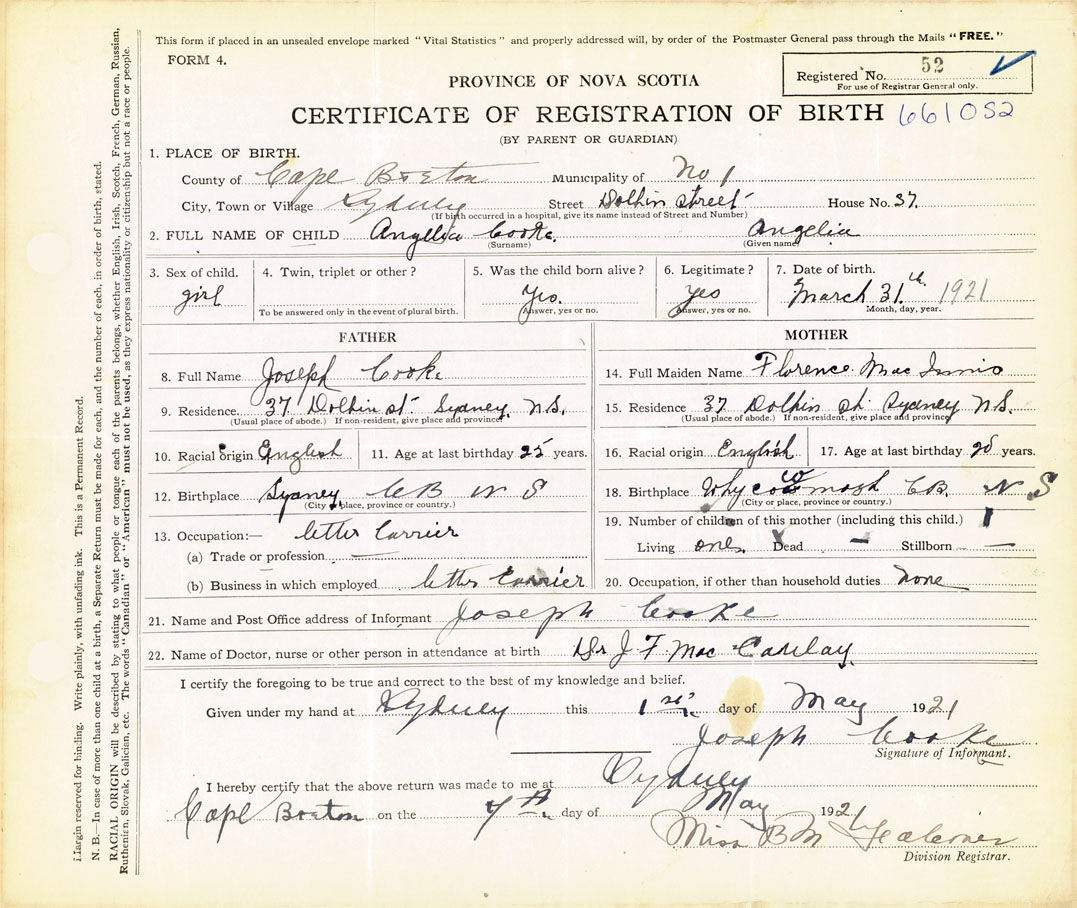 This form if placed in an unsealed envelope marked "Vital Statistics" and properly addressed will, by order of the Postmaster General pass through the Mails "FREE."
FORM 4.
Registered No. 52
For use of Registrar General only.
PROVINCE OF NOVA SCOTIA
CERTIFICATE OF REGISTRATION OF BIRTH 661052
(BY PARENT OR GUARDIAN)
1. PLACE OF BIRTH.
County of Cape Breton Municipality of No 1
City, Town or Village Sydney Street Dolbin street House No. 37.
(If birth occurred in a hospital, give its name instead of Street and Number)
2. FULL NAME OF CHILD Cooke. Angelia
(Surname) (Given name)
3. Sex of child. 4. Twin, triplet or other? 5. Was the child born alive? 6. Legitimate? 7. Date of birth.
girl Yes. yes March 31 th 1921
To be answered only in the event of plural birth. Answer, yes or no. Answer, yes or no. Month, day, year.
FATHER
8. Full Name Joseph Cooke
9. Residence. 37 Dolbin st. Sydney, N.S.
(Usual place of abode.) If non-resident, give place and province
10. Racial origin English 11. Age at last birthday 25 years.
12. Birthplace Sydney C B N S
(City or place, province or country.)
13. Occupation:— letter Carrier
(a) Trade or profession
(b) Business in which employed letter Carrier
MOTHER
14. Full Maiden Name Florence Mac Innis
15. Residence 37 Dolbin st. Sydney N.S.
(Usual place of abode.) If non-resident, give place and province
16. Racial origin English 17. Age at last birthday 20 years.
18. Birthplace C.B. N S
(City or place, province or country.)
19. Number of children of this mother (including this child.) 1
Living one. Dead – Stillborn –
20. Occupation, if other than household duties none
21. Name and Post Office address of Informant Joseph Cooke
22. Name of Doctor, nurse or other person in attendance at birth Dr J F Mac
I certify the foregoing to be true and correct to the best of my knowledge and belief.
Given under my hand at Sydney this 1 st. day of May 1921
Joseph Cooke
Signature of Informant.
I hereby certify that the above return was made to me at Sydney
Cape Breton on the 7th day of May 1921
Miss B M
Division Registrar.
Margin reserved for binding. Write plainly, with unfading ink. This is a Permanent Record.
N. B.—In case of more than one child at a birth, a Separate Return must be made for each, and the number of each, in order of birth, stated.
RACIAL ORIGIN will be described by stating to what people or tongue each of the parents belongs, whether English, Irish, Scotch, French, German, Russian,
Ruthenian, Slovak, Galician, etc. The words "Canadian" or "American" must not be used, as they express nationality or citizenship but not a race or people.